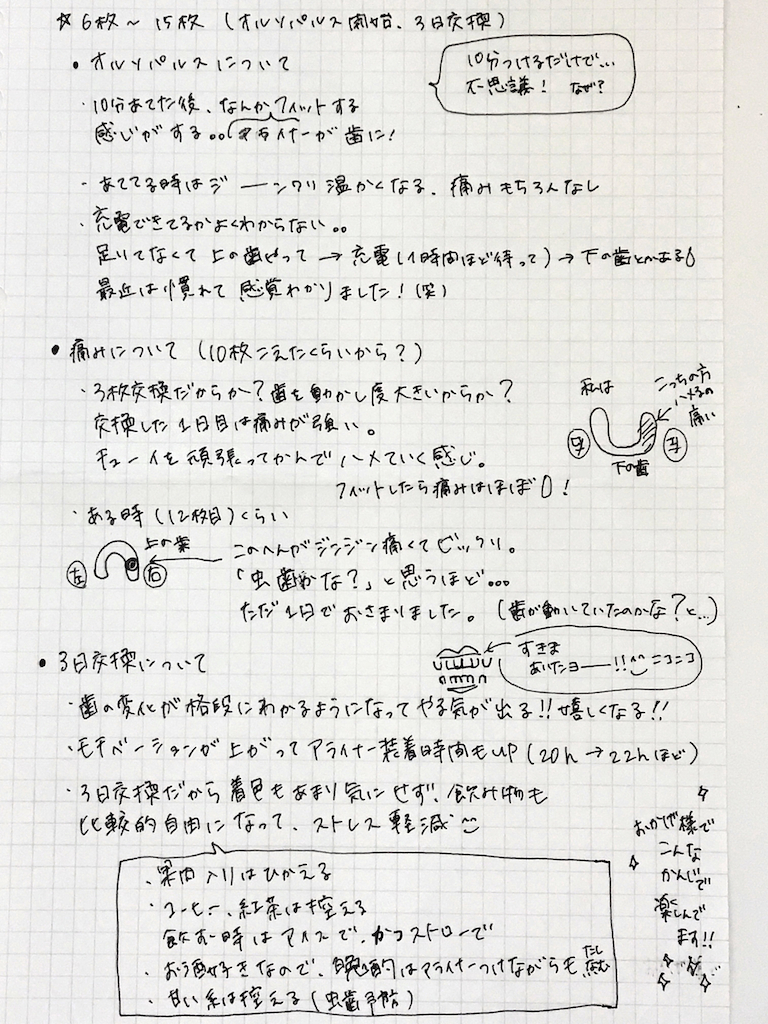 ☆ 6枚～15枚 (オルソパルス開始、3日交換)
・オルソパルスについて
10分つけるだけで…
不思議! なぜ?
・10分あてた後、なんかフィットする
感じがする。。アライナーが歯に!
・あててる時はジーーンワリ温かくなる、痛みもちろんなし
・充電できてるかよくわからない。。
足りてなくて上の歯やって→充電(1時間ほど待って)→下の歯とかある
最近は慣れて感覚わかりました!(笑)
・痛みについて (10枚こえたくらいから?)
・3枚交換だからか?歯を動かし度大きいからか?
交換した1日目は痛みが強い。
チューイを頑張ってかんでハメていく感じ。
フィットしたら痛みはほぼ0!
私は
こっちの方
ハメるの
痛い
下の歯
・ある時(12枚目)くらい
上の歯
左 右
このへんがジンジン痛くてビックリ。
「虫歯かな?」と思うほど…
ただ1日でおさまりました。(歯が動いていたのかな?と…)
・3日交換について
すきま
あいたヨーー!!^^ニコニコ
・歯の変化が格段にわかるようになってやる気が出る!!嬉しくなる!!
・モチベーションが上がってアライナー装着時間もup(20h→22hほど)
・3日交換だから着色もあまり気にせず、飲み物も
比較的自由になって、ストレス軽減
・果肉入りはひかえる
・コーヒー、紅茶は控える
飲む時はアイスで、かつストローで
・お酒好きなので、晩酌はアライナーつけながらも
・甘い系は控える(虫歯予防)
おかげ様で
こんな
かんじで
楽しんで
ます!!